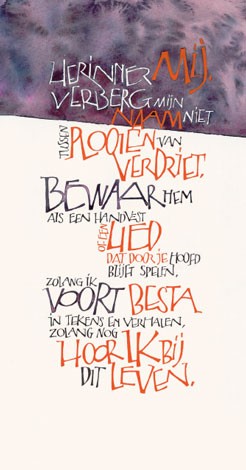 HERINNER MIJ,
VERBERG MIJN
NAAM NIET
TUSSEN
PLOOIEN VAN
VERDRIET.
BEWAAR HEM
ALS EEN HANDVEST
OF EEN
LIED
DAT DOOR JE HOOFD
BLIJFT SPELEN,
ZOLANG IK
VOORT BESTA
IN TEKENS EN VERHALEN,
ZOLANG NOG
HOOR IK BIJ
DIT LEVEN.